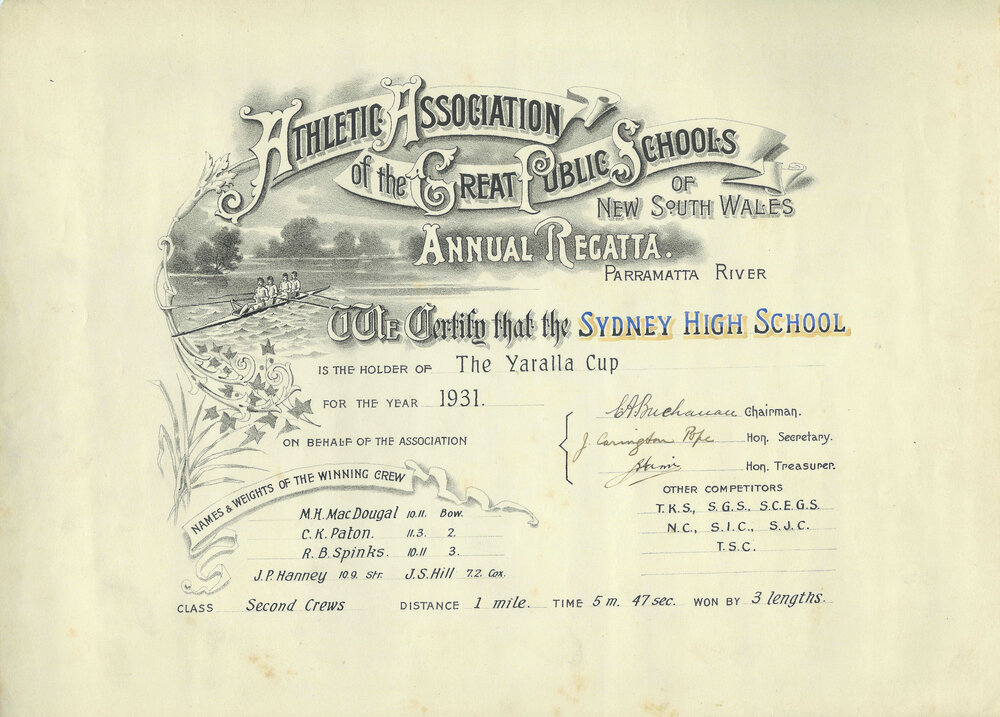 ATHLETIC ASSOCIATION
of the GREAT PUBLIC SCHOOLS
OF
NEW SOUTH WALES
ANNUAL REGATTA.
PARRAMATTA RIVER
We Certify that the SYDNEY HIGH SCHOOL
IS THE HOLDER OF The Yaralla Cup
FOR THE YEAR 1931.
ON BEHALF OF THE ASSOCIATION
C A Buchanan Chairman.
J. Carington Pope Hon. Secretary.
Hon. Treasurer.
NAMES & WEIGHTS OF THE WINNING CREW
M.H. MacDougal 10.11. Bow.
C.K. Paton. 11.3. 2.
R.B. Spinks. 10.11 3.
J.P. Hanney 10.9. Str. J.S. Hill 7.2. Cox.
OTHER COMPETITORS
T.K.S., S.G.S., S.C.E.G.S.
N.C., S.I.C., S.J.C.
T.S.C.
CLASS Second Crews DISTANCE 1 mile. TIME 5 m. 47 sec. WON BY 3 lengths.